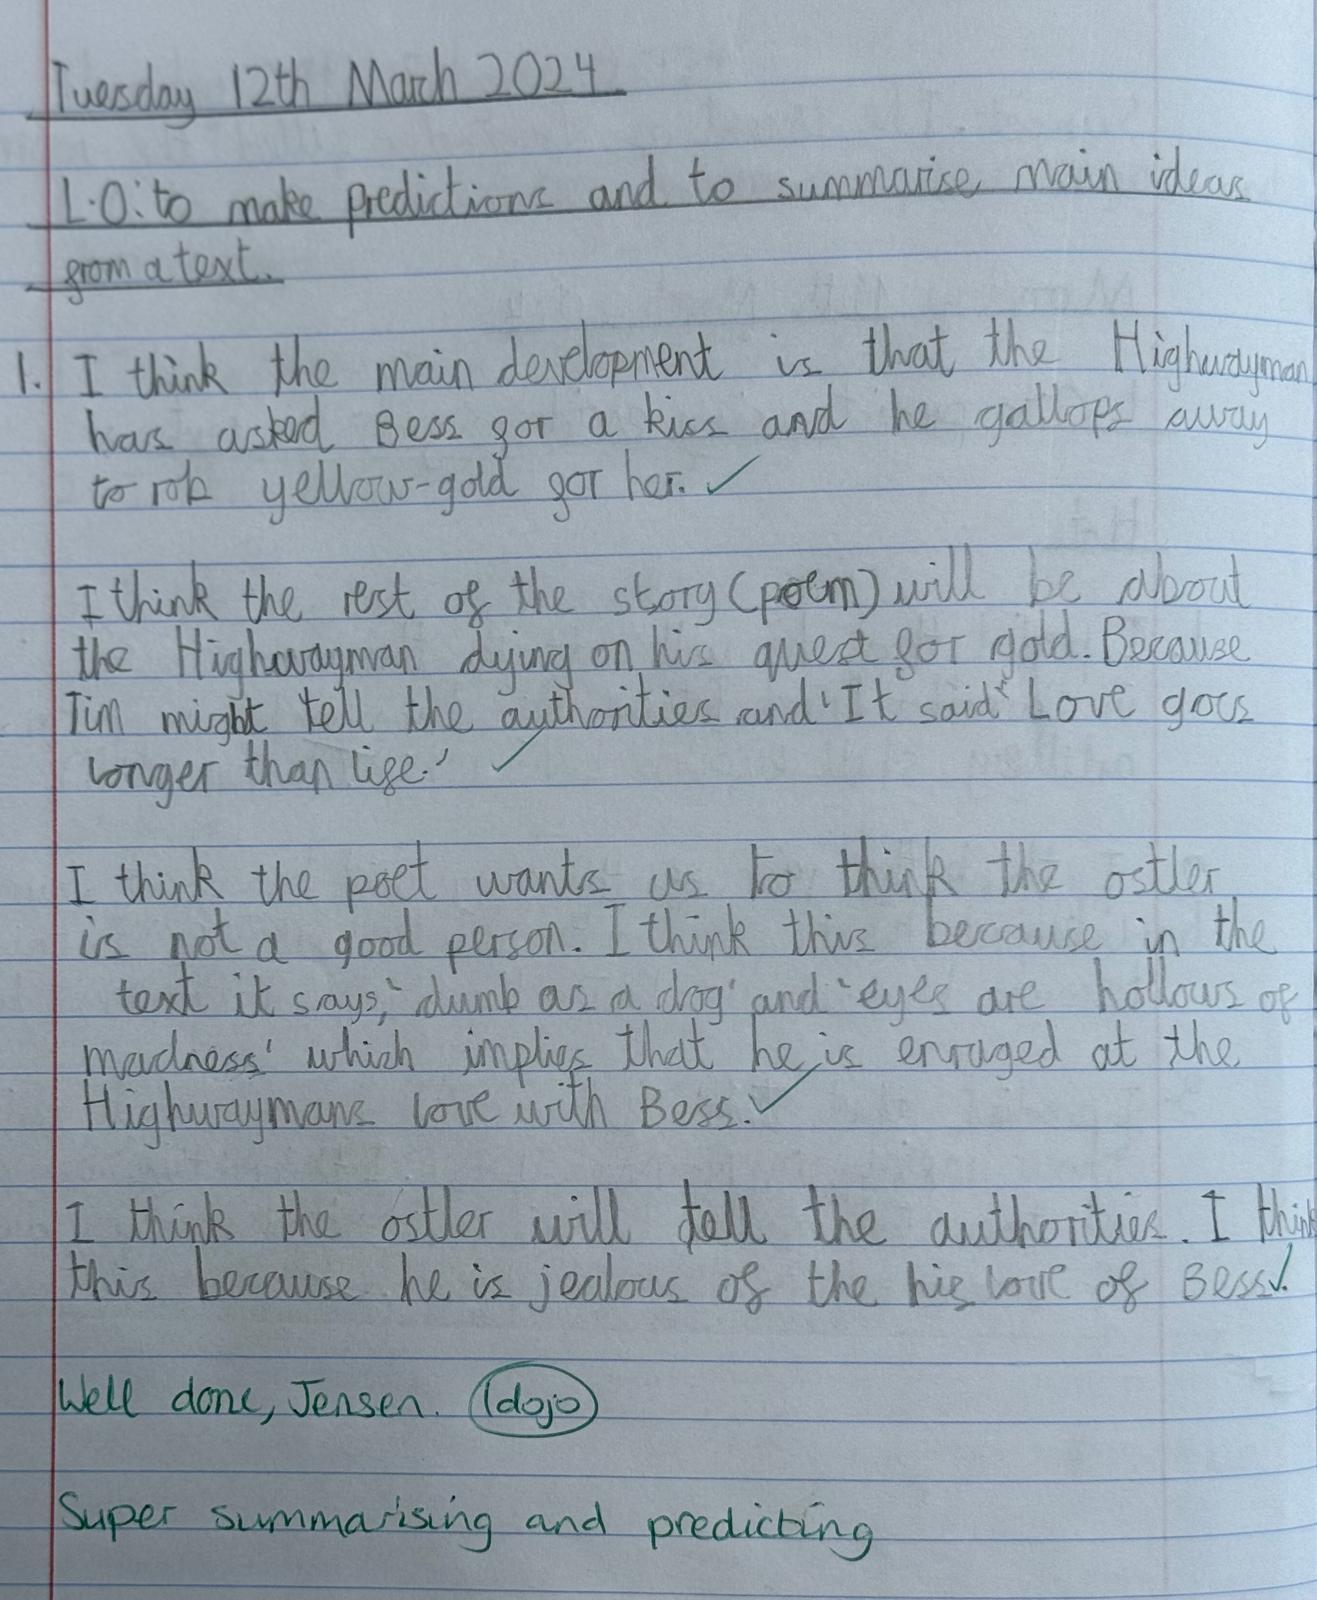 Tuesday 12th March 2024
L.O: to make predictions and to summarise main ideas
from a text.
1. I think the main development is that the Highwayman
has asked Bess for a kiss and he gallops away
to rob yellow-gold for her. ✓
I think the rest of the story (poem) will be about
the Highwayman dying on his quest for gold. Because
Tim might tell the authorities and 'It said' Love goes
longer than life.' ✓
I think the poet wants us to think the ostler
is not a good person. I think this because in the
text it says, 'dumb as a dog' and 'eyes are hollows of
madness' which implies that he is enraged at the
Highwaymans love with Bess. ✓
I think the ostler will tell the authorities. I think
this because he is jealous of the his love of Bess. ✓
Well done, Jensen. 1dojo
Super summarising and predicting